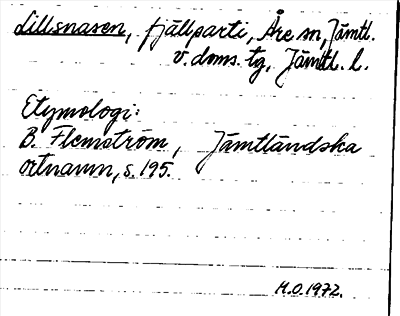 Lillsnasen, fjällparti, Åre sn, Jämtl.
v. doms. tg, Jämtl. l.
Etymologi:
B. Flemström, Jämtländska
ortnamn, s. 195.
H.O. 1972.